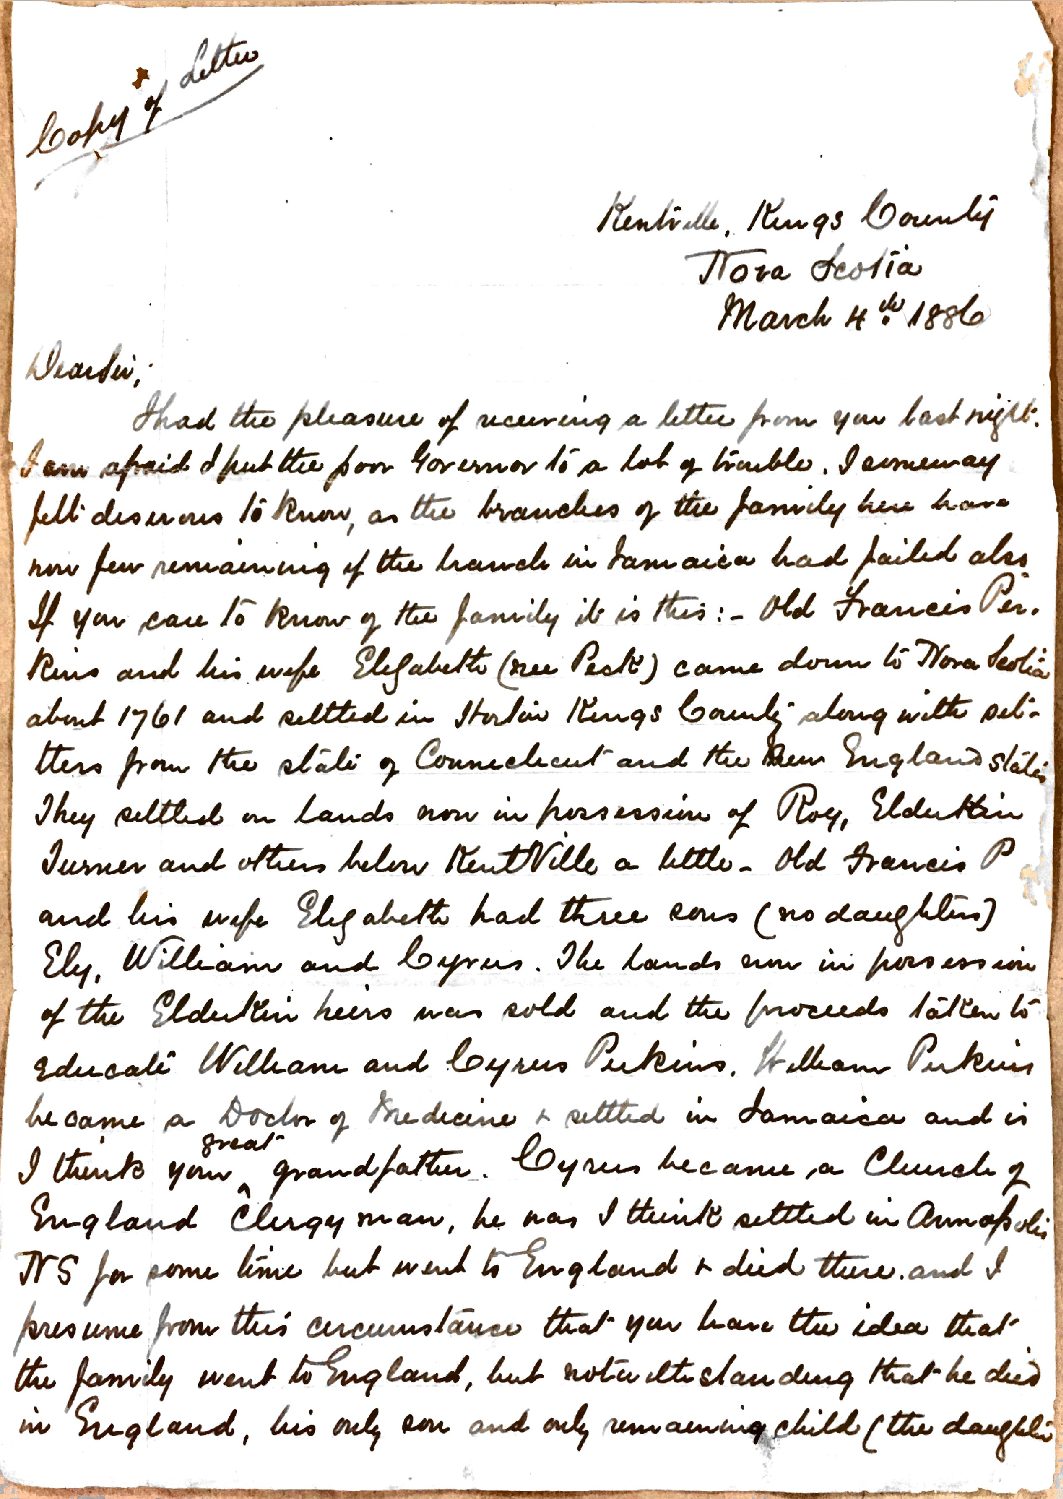 Copy of Letter
Kentville, Kings County
Nova Scotia
March 4th. 1886
Dear Sir,
I had the pleasure of receiving a letter from you last night.
I am afraid I put the poor Governor to a lot of trouble. I someway
felt desirous to know, as the branches of the family here have
now few remaining if the branch in Jamaica had failed also
If you care to know of the family it is this:- Old Francis Per-
kins and his wife Elizabeth (nee Peck) came down to Nova Scotia
about 1761 and settled in Horton Kings County along with set-
tlers from the state of Connecticut and the New England states
They settled on lands now in possession of Roy, Elderkin
Turner and others below KentVille a little - Old Francis P
and his wife Elizabeth had three sons (no daughters)
Ely, William and Cyrus. The lands now in possession
of the Elderkin heirs was sold and the proceeds taken to
educate William and Cyrus Perkins. William Perkins
became a Doctor of Medicine + settled in Jamaica and is
I think your great grandfather. Cyrus became a Church of
England Clergyman, he was I think settled in Annapolis
NS for some time but went to England + died there. and I
presume from this circumstance that you have the idea that
the family went to England, but notwithstanding that he died
in England, his only son and only remaining child (the daughter